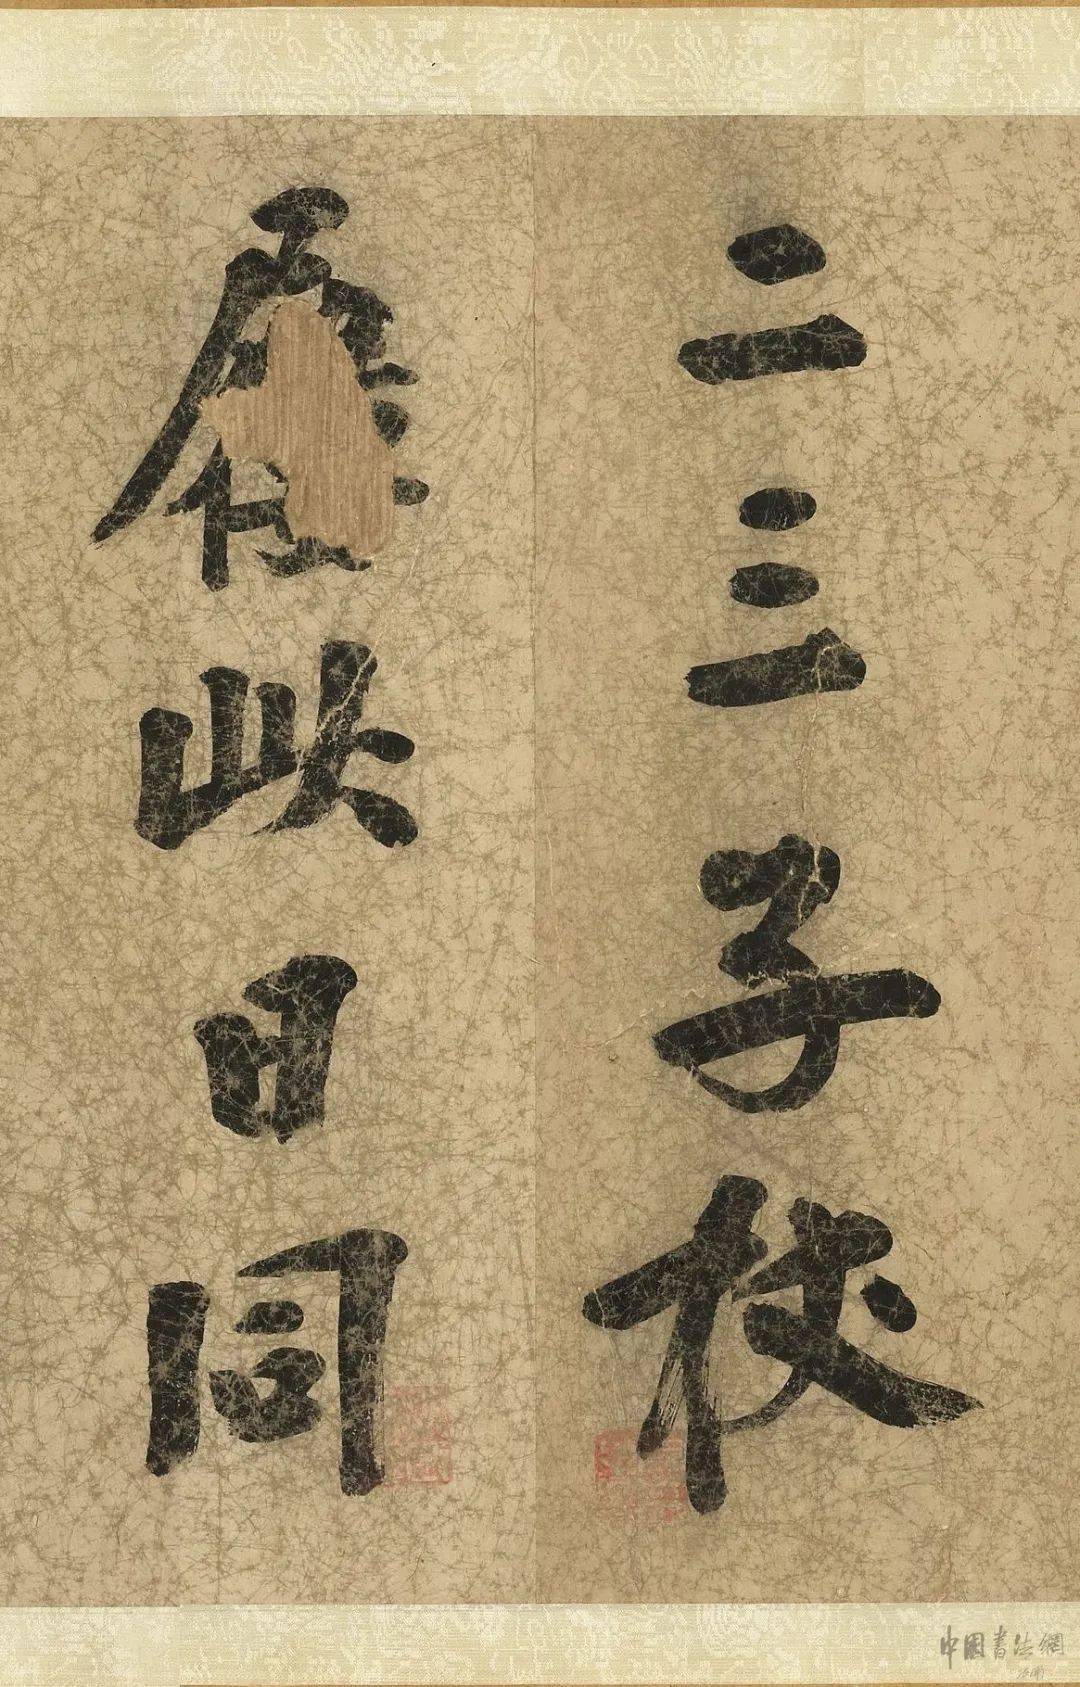 二三子杖
此日同
中國書法網